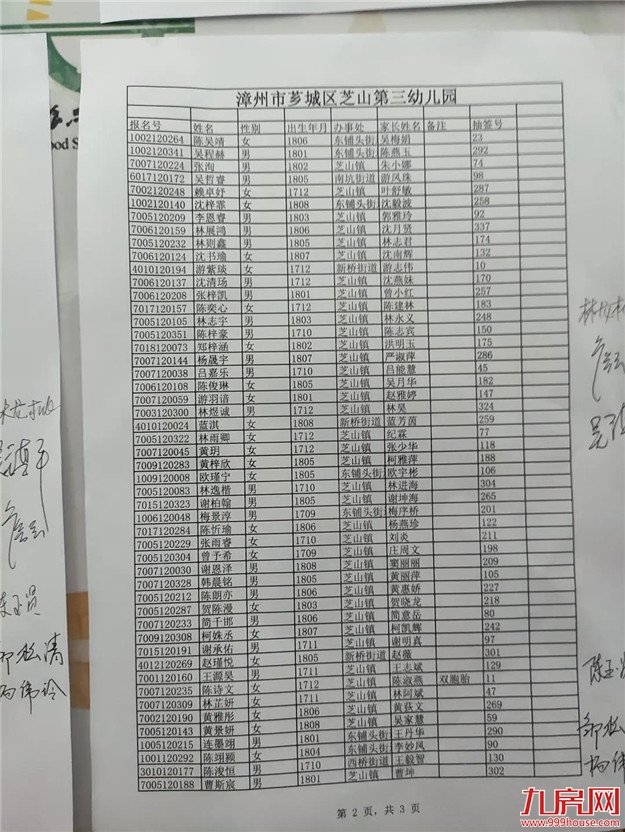 漳州市芗城区芝山第三幼儿园
报名号 姓名 性别 出生年月 办事处 家长姓名 备注 抽签号
1002120264 陈吴靖 女 1806 东铺头街 吴梅娟 23
1002120341 吴程赫 男 1801 东铺头街 陈燕玉 292
7007120224 张洵 男 1802 芝山镇 朱小娜 74
6017120172 吴哲睿 男 1805 南坑街道 游凤珠 98
7002120248 赖卓妤 女 1712 芝山镇 叶舒敏 287
1002120140 沈梓霏 女 1808 东铺头街 沈毅波 258
7005120209 李恩睿 男 1803 芝山镇 郭雅玲 92
7006120159 林展鸿 男 1806 芝山镇 沈月贤 337
7005120232 林则鑫 男 1805 芝山镇 林志君 174
7006120124 沈书瑜 女 1807 芝山镇 沈南辉 132
4010120194 游紫琰 女 1712 新桥街道 游志伟 10
7006120137 沈清玚 男 1712 芝山镇 沈燕妹 170
7006120208 张梓凯 男 1801 芝山镇 曾小红 257
7017120157 陈奕心 女 1712 芝山镇 陈建林 183
7005120105 林志宇 男 1803 芝山镇 林永义 248
7005120151 陈梓豪 男 1710 芝山镇 陈志宾 150
7018120073 郑梓涵 女 1802 芝山镇 洪明玉 175
7007120144 杨晟宇 男 1807 芝山镇 严淑萍 286
7007120038 吕嘉乐 男 1710 芝山镇 吕能慧 45
7006120108 陈俊琳 女 1805 芝山镇 吴月华 182
7007120059 游羽谙 女 1801 芝山镇 赵雅婷 147
7003120300 林煜诚 男 1712 芝山镇 林昊 324
4010120024 蓝淇 女 1808 新桥街道 蓝芳茵 259
7005120322 林雨卿 女 1712 芝山镇 纪霖 77
7007120045 黄玥 女 1712 芝山镇 张少华 118
7009120283 黄梓欣 女 1805 芝山镇 柯雅萍 188
1009120008 欧瑾宁 女 1805 东铺头街 欧宇彬 106
7005120083 林逸楷 男 1710 芝山镇 林进海 304
7015120323 谢柏翰 男 1805 芝山镇 谢坤海 265
1006120048 梅景淳 男 1709 东铺头街 梅序桥 201
7017120284 陈忻瑜 女 1806 芝山镇 杨燕珍 122
7005120229 张雨睿 女 1710 芝山镇 刘炎 211
7005120304 曾予希 女 1709 芝山镇 庄周文 198
7007120030 谢恩泽 男 1808 芝山镇 窦丽丽 209
7007120328 韩晨铭 男 1805 芝山镇 黄丽萍 105
7005120212 陈朗亦 男 1806 芝山镇 黄惠娇 227
7005120287 贺陈漫 女 1803 芝山镇 贺晓龙 218
7007120235 简千邯 男 1806 芝山镇 简意岳 80
7009120308 柯姝丞 女 1807 芝山镇 柯凯辉 242
7015120191 谢承佑 男 1711 芝山镇 谢明真 97
4012120269 赵瑾悦 女 1805 新桥街道 赵薇 301
7001120160 王源昊 男 1711 芝山镇 王志斌 129
7007120235 陈诗文 女 1712 芝山镇 陈淑燕 双胞胎 11
7007120309 林芷妍 女 1712 芝山镇 林阿斌 47
7002120190 黄雅彤 女 1806 芝山镇 黄荻文 269
7005120143 黄景妍 女 1808 芝山镇 吴家慧 59
1005120215 连墨翊 男 1801 东铺头街 王丹华 290
1001120292 陈翊颖 女 1804 东铺头街 李妙凤 90
3010120177 陈浚恒 男 1710 西桥街道 王毅智 130
7005120188 曹斯宸 男 1801 芝山镇 曹坤 302
第 2 页，共 3 页
九房网
www.999house.com